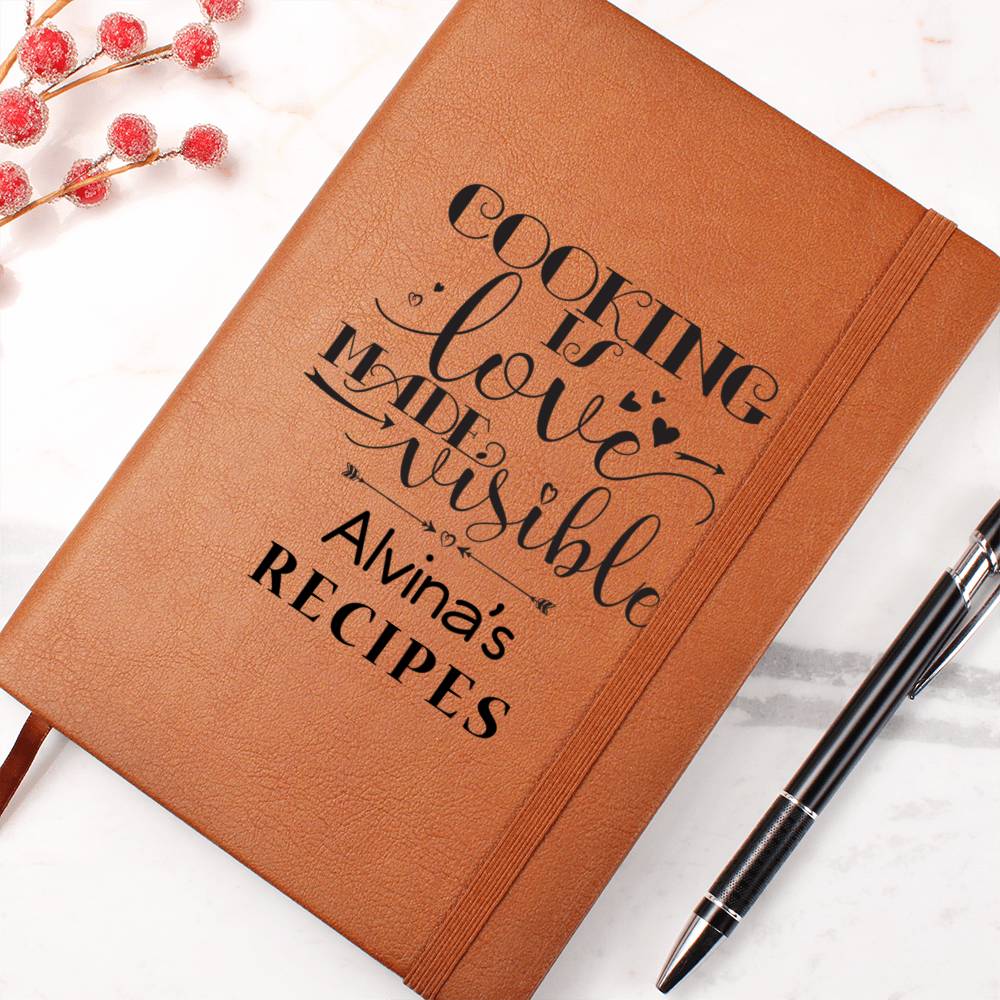 COOKING
IS
love
MADE
visible
Alvina's
RECIPES